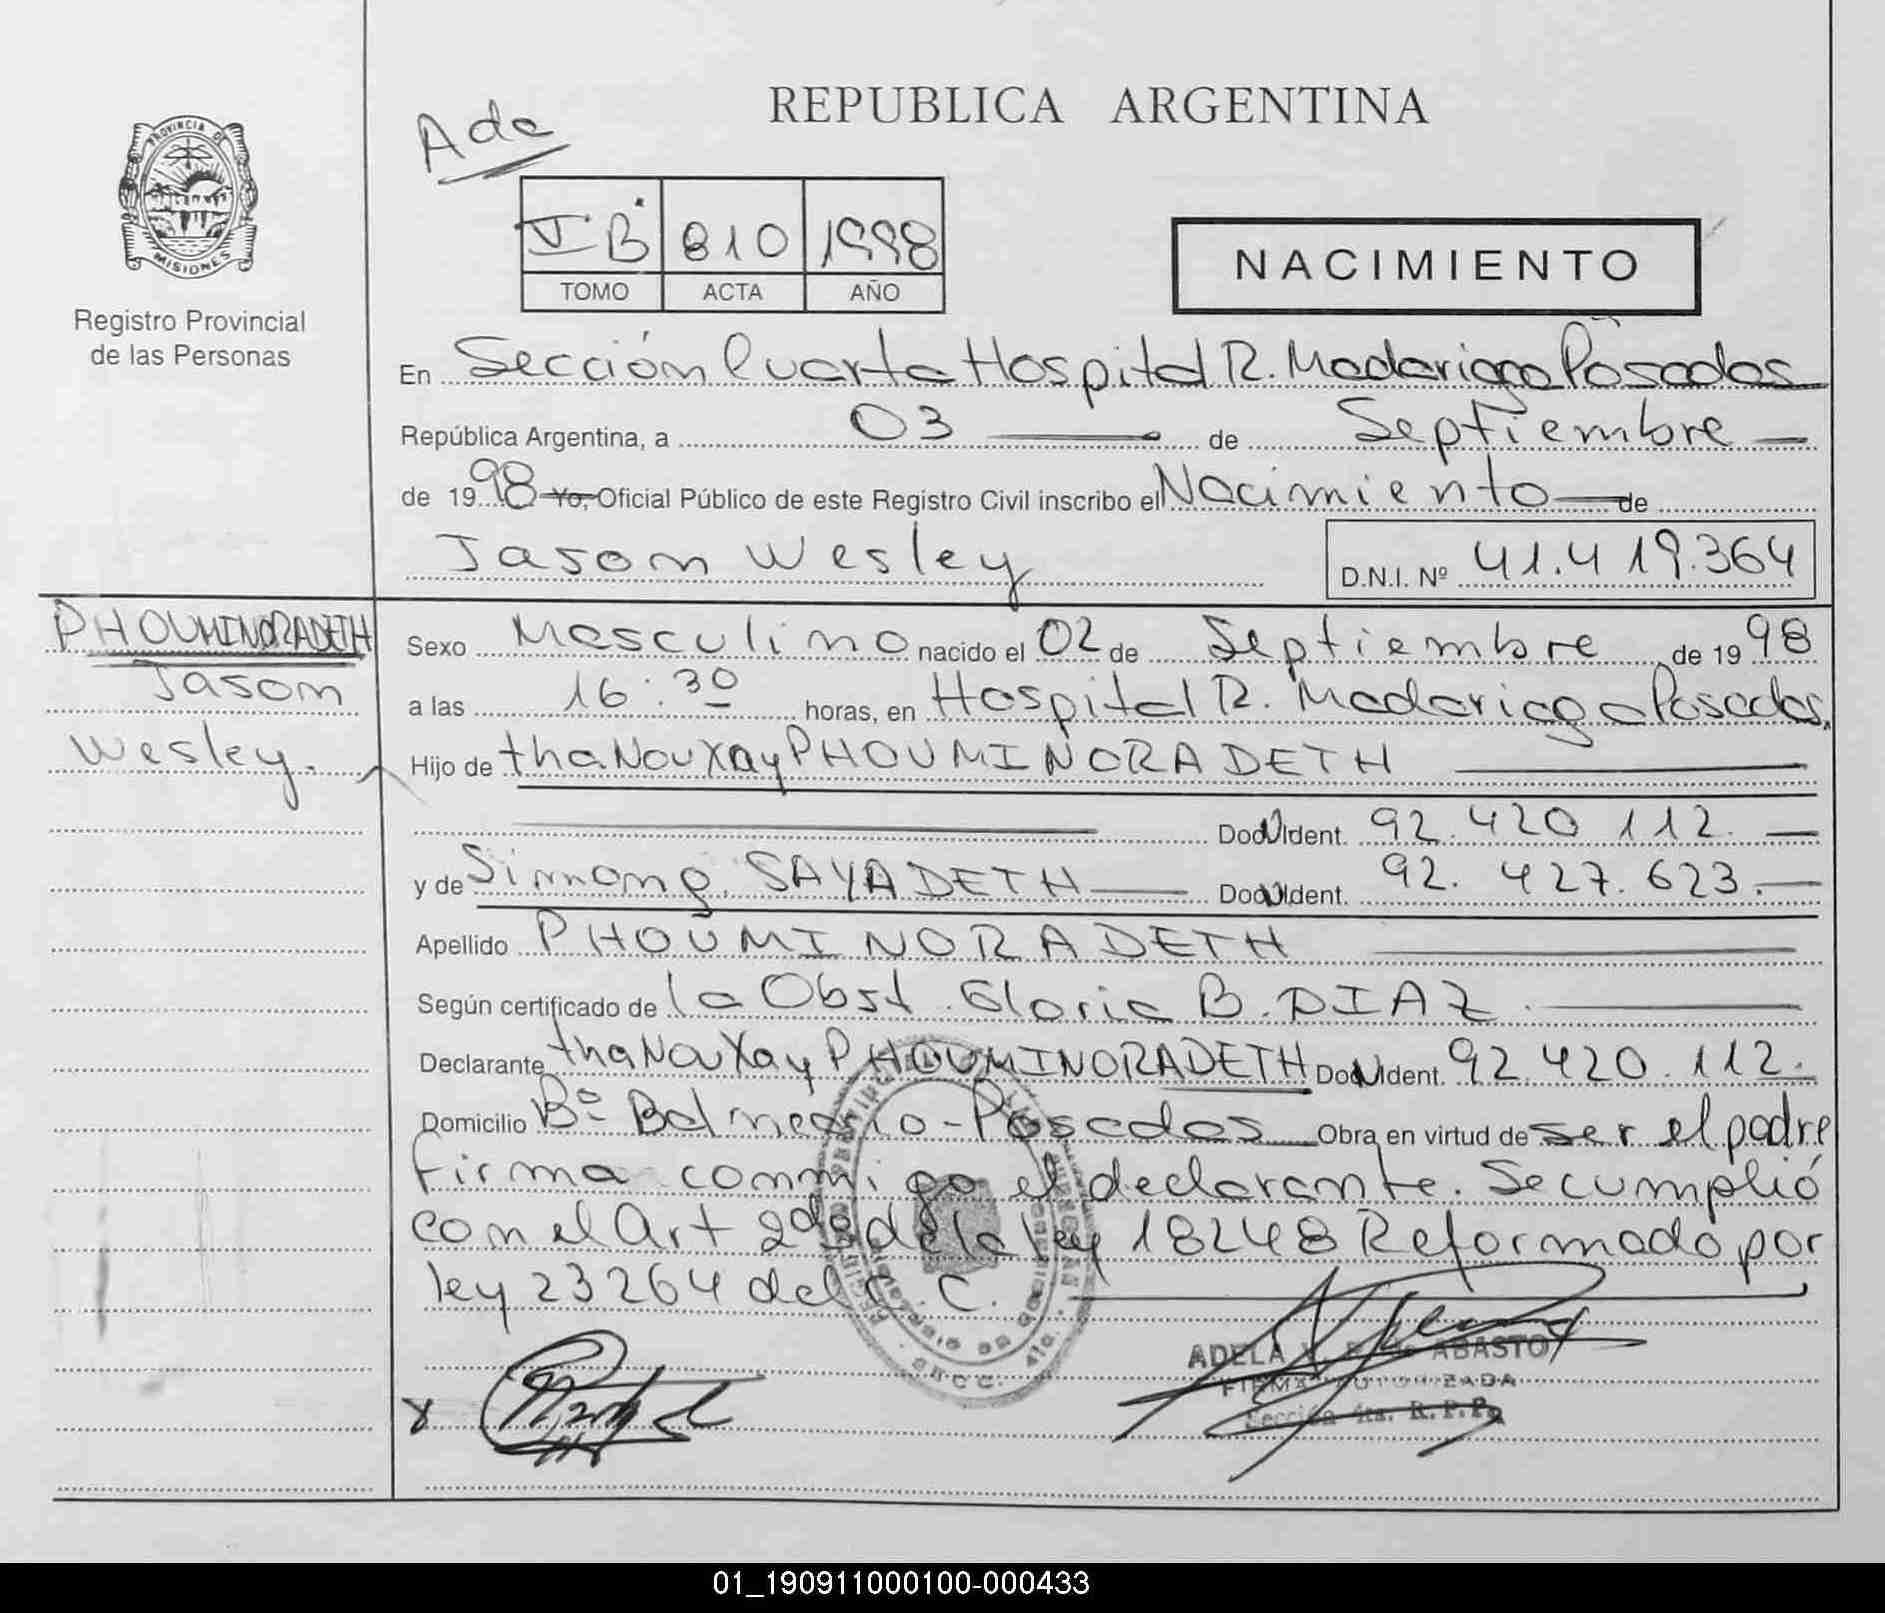 REPUBLICA ARGENTINA
Ada
PROVINCIA DE
MISIONES
Registro Provincial
de las Personas
I B 810 1998
TOMO ACTA AÑO
NACIMIENTO
En Sección Cuarta Hospital R. Madariaga Posadas
República Argentina, a 03 de Septiembre
de 1998 Yo, Oficial Público de este Registro Civil inscribo el Nacimiento de
Jason Wesley
D.N.I. Nº 41.419.364
PHOUMINORADETH
Jason
Wesley.
Sexo Masculino nacido el 02 de Septiembre de 1998
a las 16:30 horas, en Hospital R. Madariaga Posadas.
Hijo de thaNouXay PHOUMINORADETH
Doc. Ident. 92.420 112.
y de Sinnong SAYADETH Doc. Ident. 92. 427. 623.
Apellido PHOUMINORADETH
Según certificado de la Obst. Gloria B. DIAZ.
Declarante thaNouXay PHOUMINORADETH Doc. Ident. 92.420.112.
Domicilio Bº Balneario - Posadas Obra en virtud de ser el padre
Firma conmigo el declarante. Se cumplió
con el Art 2do de la ley 18248 Reformado por
ley 23264 del C. C.
ADELA ABASTO
FIRMA AUTORIZADA
Sección 4ta. R.P.P.
01_190911000100-000433